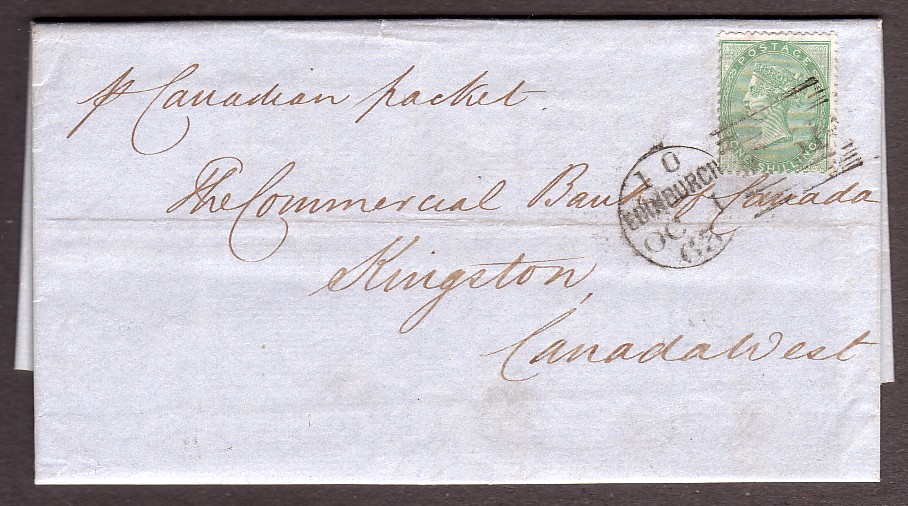 POSTAGE
ONE SHILLING
p Canadian packet.
10
EDINBURGH
OC
60
The Commercial Bank of Canada
Kingston,
Canada West